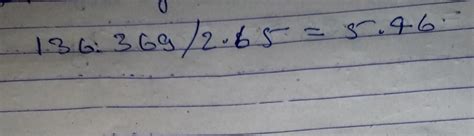 136.369/2.65 = 5.46.